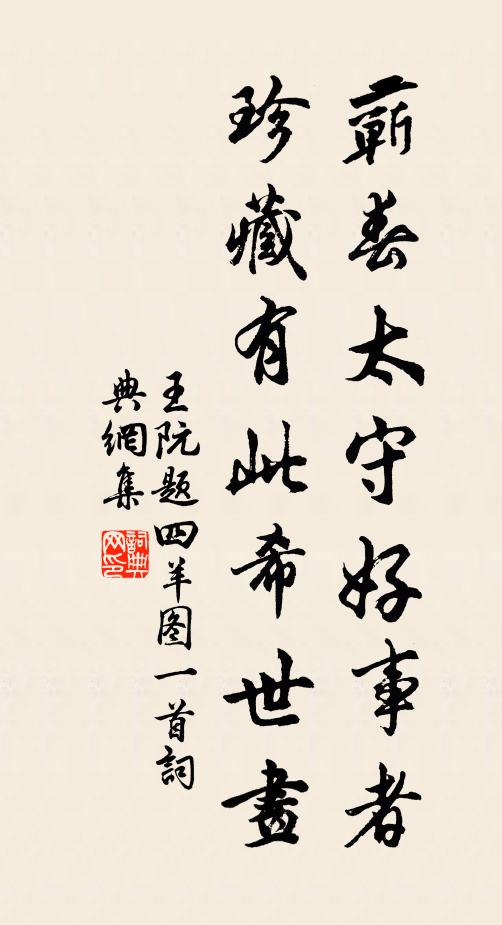 蘄春太守好事者
珍藏有此希世畫
王阮题四羊图一首詞
典網集
詞典
网印